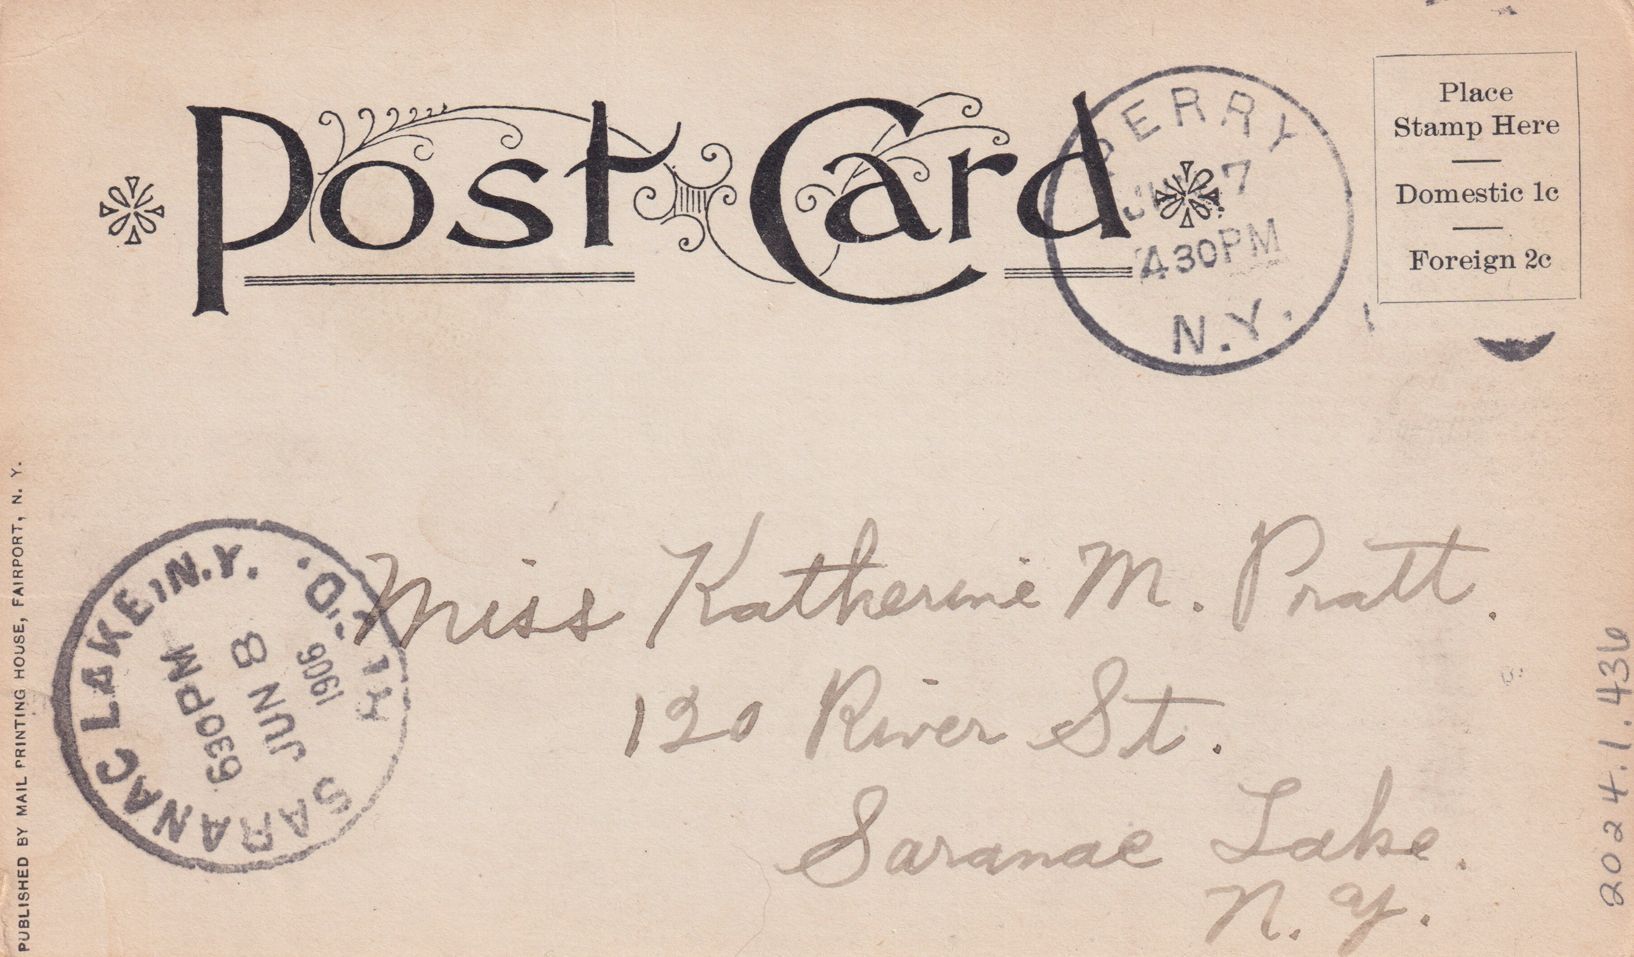 Post Card
PERRY
JUN 7
430PM
N.Y.
Place
Stamp Here
Domestic 1c
Foreign 2c
SARANAC LAKE, N.Y.
630PM
JUN 8
1906
REC'D.
Miss Katherine M. Pratt.
120 River St.
Saranac Lake.
N. Y.
PUBLISHED BY MAIL PRINTING HOUSE, FAIRPORT, N. Y.
2024.1.436